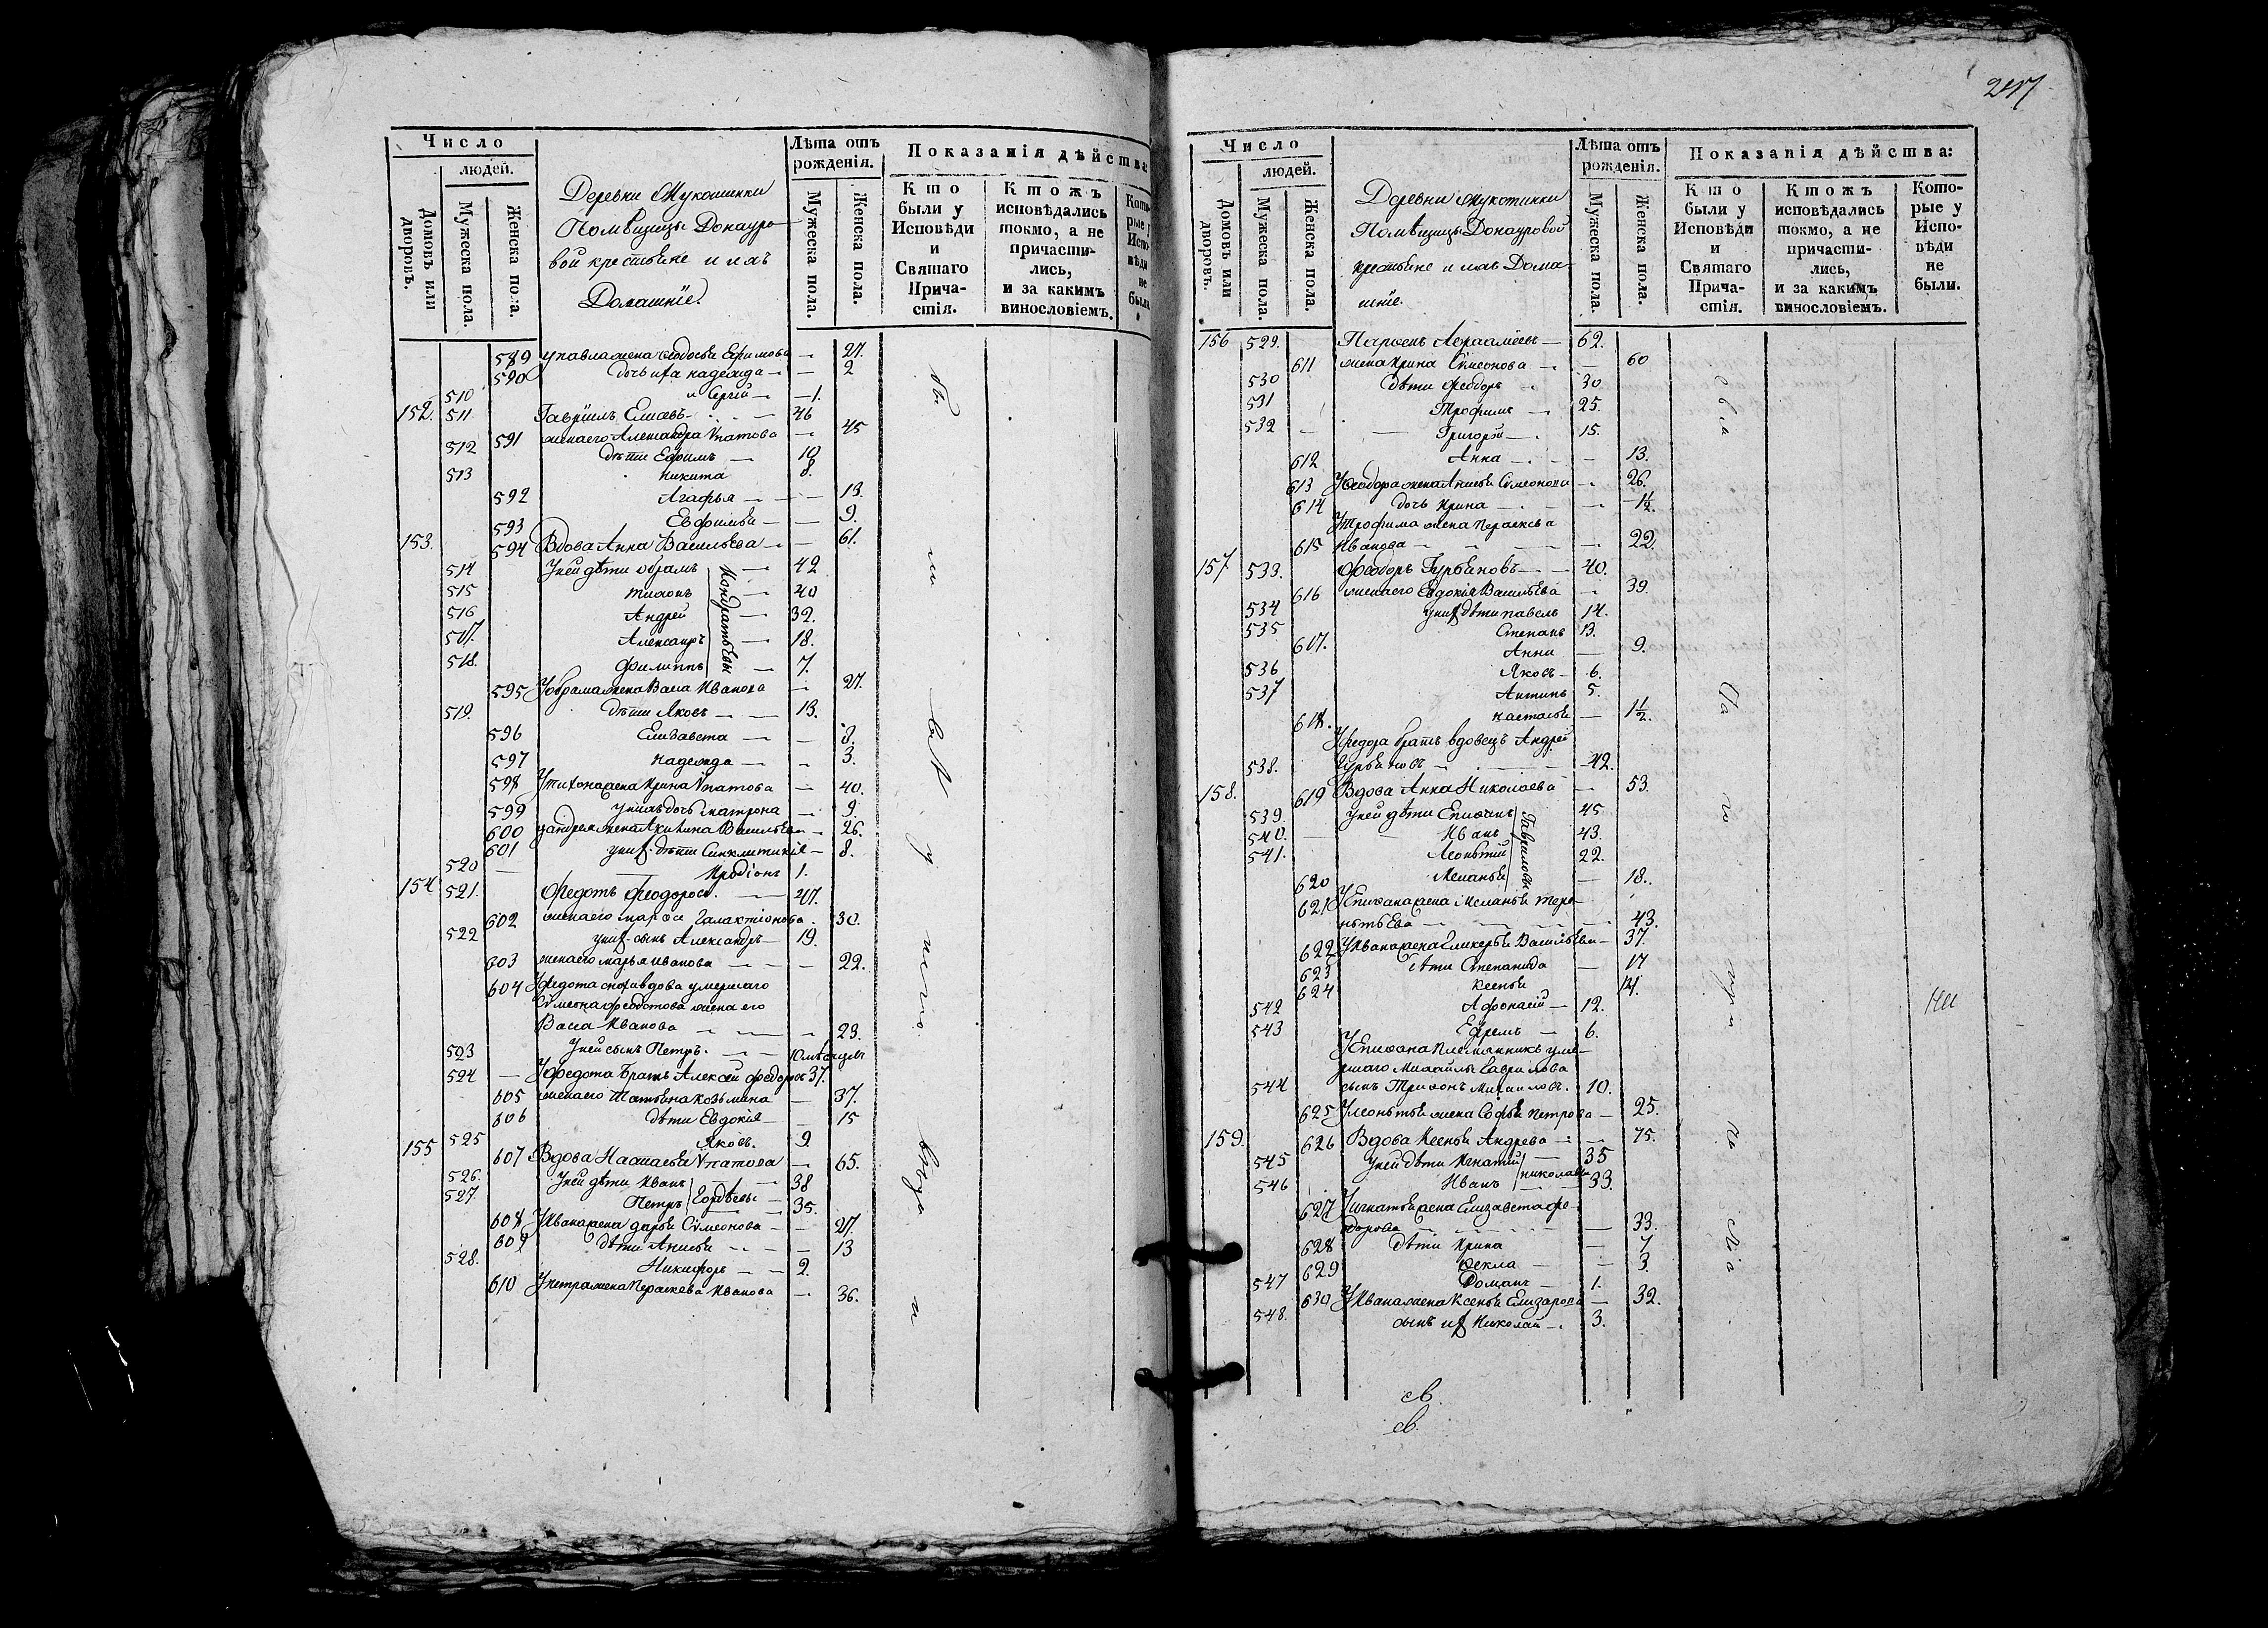 Число
людей.
Домовъ или дворовъ.
Мужеска пола.
Женска пола.
Деревни Мукотинки
Помѣщицы Донауро-
вой крестьяне и ихъ
Домашніе.
Лѣта отъ рожденія.
Мужеска пола.
Женска пола.
Показанія дѣйства:
Кто были у Исповѣди и Святаго Причастія.
Ктожъ исповѣдались токмо, а не причастились, и за какимъ винословіемъ.
589 У павла жена Ѳеодосья Ефимова — 27.
590 дочь ихъ надежда — 2
510 и Сергій — 1.
152. 511 Гавріилъ Елисѣевъ — 46
591 жена его Александра Ипатова — 45
512 дѣти Ефимъ — 10
513 никита 8.
592 Агафья — 13.
593 Евфимья — 9.
153. 594 Вдова Анна Васильева — 61.
514 У ней дѣти Абрамъ — 42
515 тихонъ — 40
516 Андрей — 32.
517. Александръ — 18.
518. Филиппъ — 7.
Кондратьевы
595 У абрама жена Васса Иванова — 27.
519. дѣти Яковъ — 13.
596 Елизавета — 8.
597 надежда — 3.
598 У тихона жена Ирина Ипатова — 40.
599 у нихъ дочь матрона — 9.
600 У андрея жена Акилина Васильева — 26.
601 у них дѣти Синклитикія — 8.
520 Иродіонъ 1.
154 521. Федотъ Феодоровъ. — 47.
602 жена его марфа Галактіонова 30.
522 у них сынъ Александръ — 19.
603 жена его марья иванова — 22.
604 У федота сноха вдова умершаго
Сѵмеона федотова жена его
Васса Иванова — 23.
523 У ней сынъ Петръ. — 10 мѣсяцовъ
524 — У федота братъ Алексѣй федоровъ 37.
605 жена его Татьяна козьмина — 37.
606 дѣти Евдокія — 15
525 Яковъ. 9
155 607 Вдова Настасья Ипатова — 65.
526. У ней дѣти Иванъ — 38
527. Петръ — 35.
Гордѣевы
608 У Ивана жена дарья Сѵмеонова — 27.
609 дѣти Анисья — 13
528. Никифоръ — 2.
610 У петра жена Параскева Иванова — 36.
247
Число
людей.
Домовъ или дворовъ.
Мужеска пола.
Женска пола.
Деревни Мукотинки
Помѣщицы Донауровой
крестьяне и ихъ Дома-
шніе.
Лѣта отъ рожденія.
Мужеска пола.
Женска пола.
Показанія дѣйства:
Кто были у Исповѣди и Святаго Причастія.
Ктожъ исповѣдались токмо, а не причастились, и за какимъ винословіемъ.
Которые у Исповѣди не были.
156 529. Парѳенъ Авраамѣевъ — 62.
611 жена Ирина Сѵмеонова — 60
530 дѣти Феодоръ 30
531 Трофимъ — 25.
532 Григорій — 15.
612 Анна — 13.
613 У Ѳеодора жена Анисья Сѵмеонова — 26.
614 дочь Ирина — 1½.
У трофима жена Параскева
615 Иванова — 22.
157 533. Феодоръ Гурьяновъ — 40.
616 жена его Евдокія Васильева — 39.
534 у них дѣти павелъ 14.
535 Степанъ 13.
617. Анна — 9.
536 Яковъ — 6.
537 Антипъ 5.
618. настасья — 1½.
У федора братъ вдовецъ Андрей
538. Гурьяновъ — 42.
158. 619 Вдова Анна Николаева — 53.
539. У ней дѣти Епифанъ 45
540. Иванъ 43.
541. Леонътій 22.
620 Меланья — 18.
Гавриловы
621 У Епифана жена Меланья тере-
нтьева — 43.
622 У Ивана жена Гликерья Васильева — 37.
623 дѣти Степанида — 17
624 Ксенья 14.
542 Афонасій — 12.
543 Ефремъ — 6.
У Епифана племянникъ уме-
ршаго Михаилы Гаврилова
544 сынъ Трифонъ Михаиловъ. 10.
625 У леонътья жена Софья петрова — 25.
159. 626 Вдова Ксенья Андреева — 75.
545 У ней дѣти Игнатій — 35
546 Иванъ — 33.
николаевы
627 У игнатья жена Елизавета фе-
дорова — 33.
628 дѣти Ирина — 7
629 Ѳекла — 3.
547 Романъ — 1.
630 У Ивана жена Ксенья Елизарова — 32.
548. сынъ их Николай — 3.